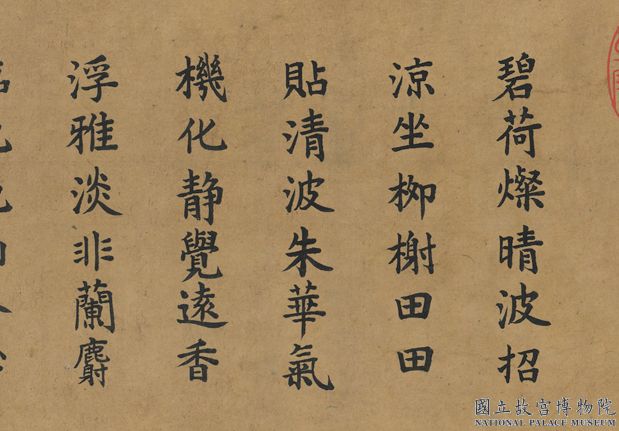 碧荷燦晴波招
涼坐栁榭田田
貼清波朱華氣
機化静覺逺香
浮雅淡非蘭麝
國立故宮博物院
NATIONAL PALACE MUSEUM